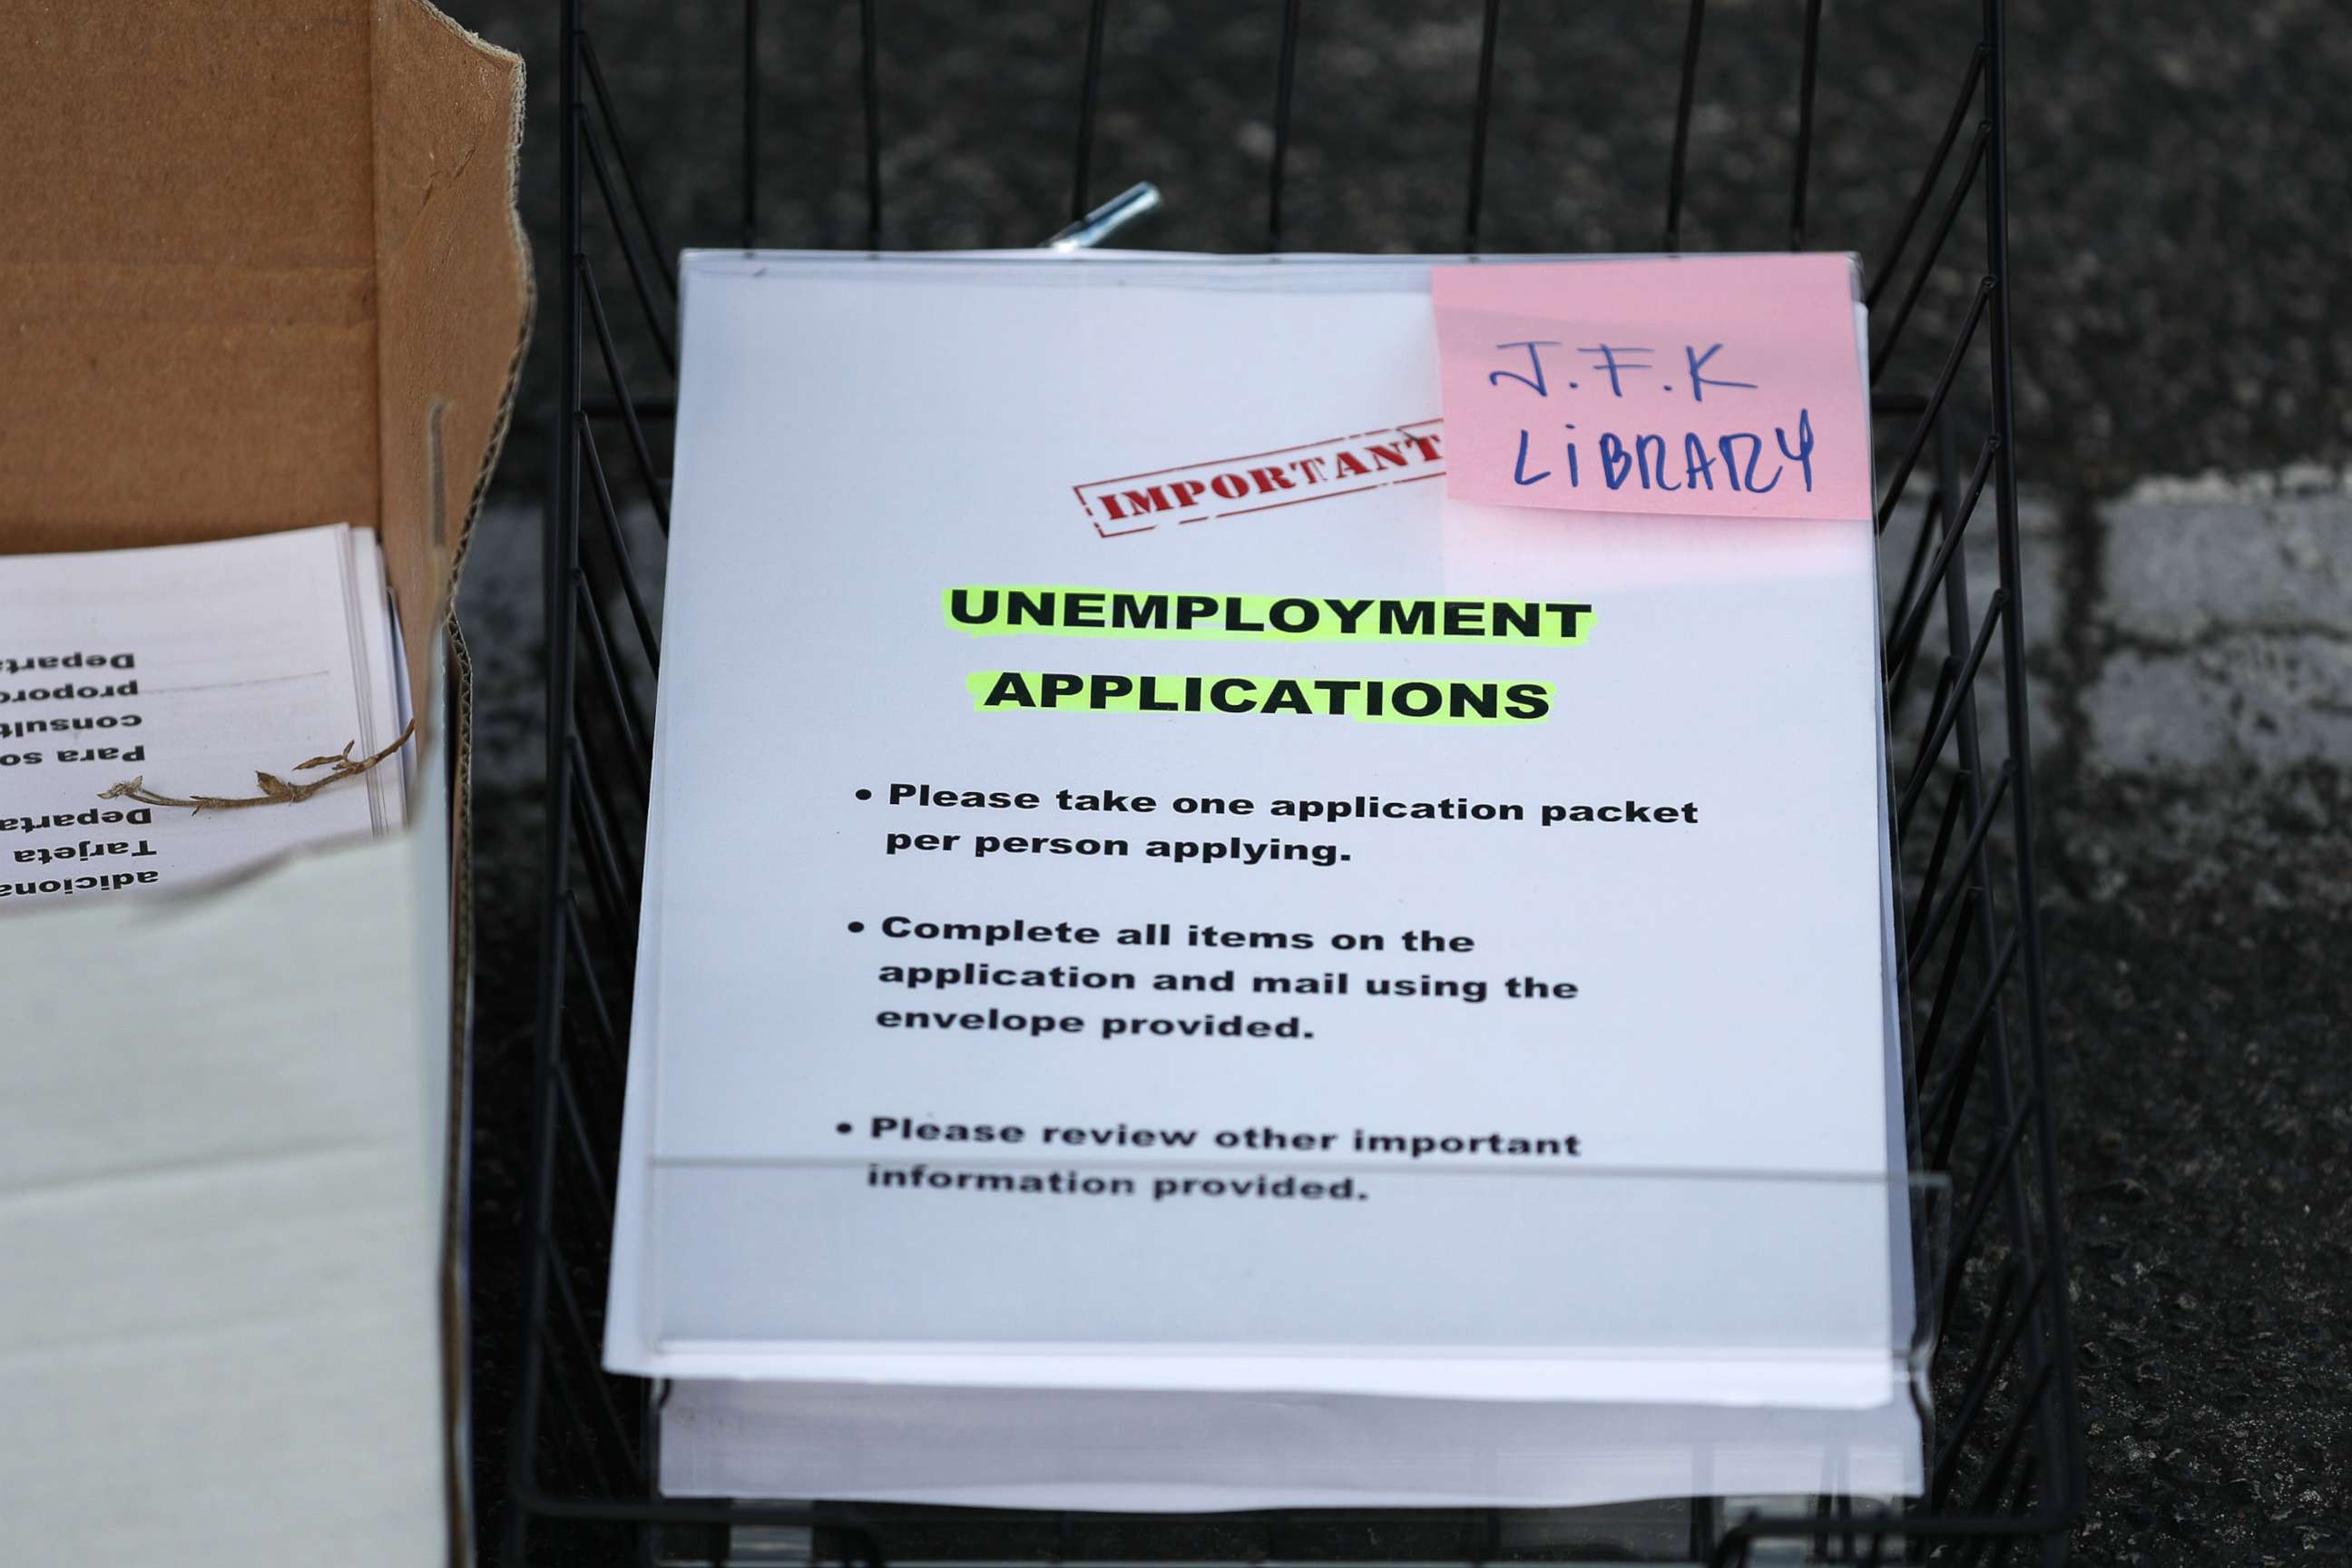 J.F.K
LiBRARY
IMPORTANT
UNEMPLOYMENT
APPLICATIONS
• Please take one application packet
per person applying.
• Complete all items on the
application and mail using the
envelope provided.
• Please review other important
information provided.
adiciona
Tarjeta
Departa
Para so
consult
proporc
Departa